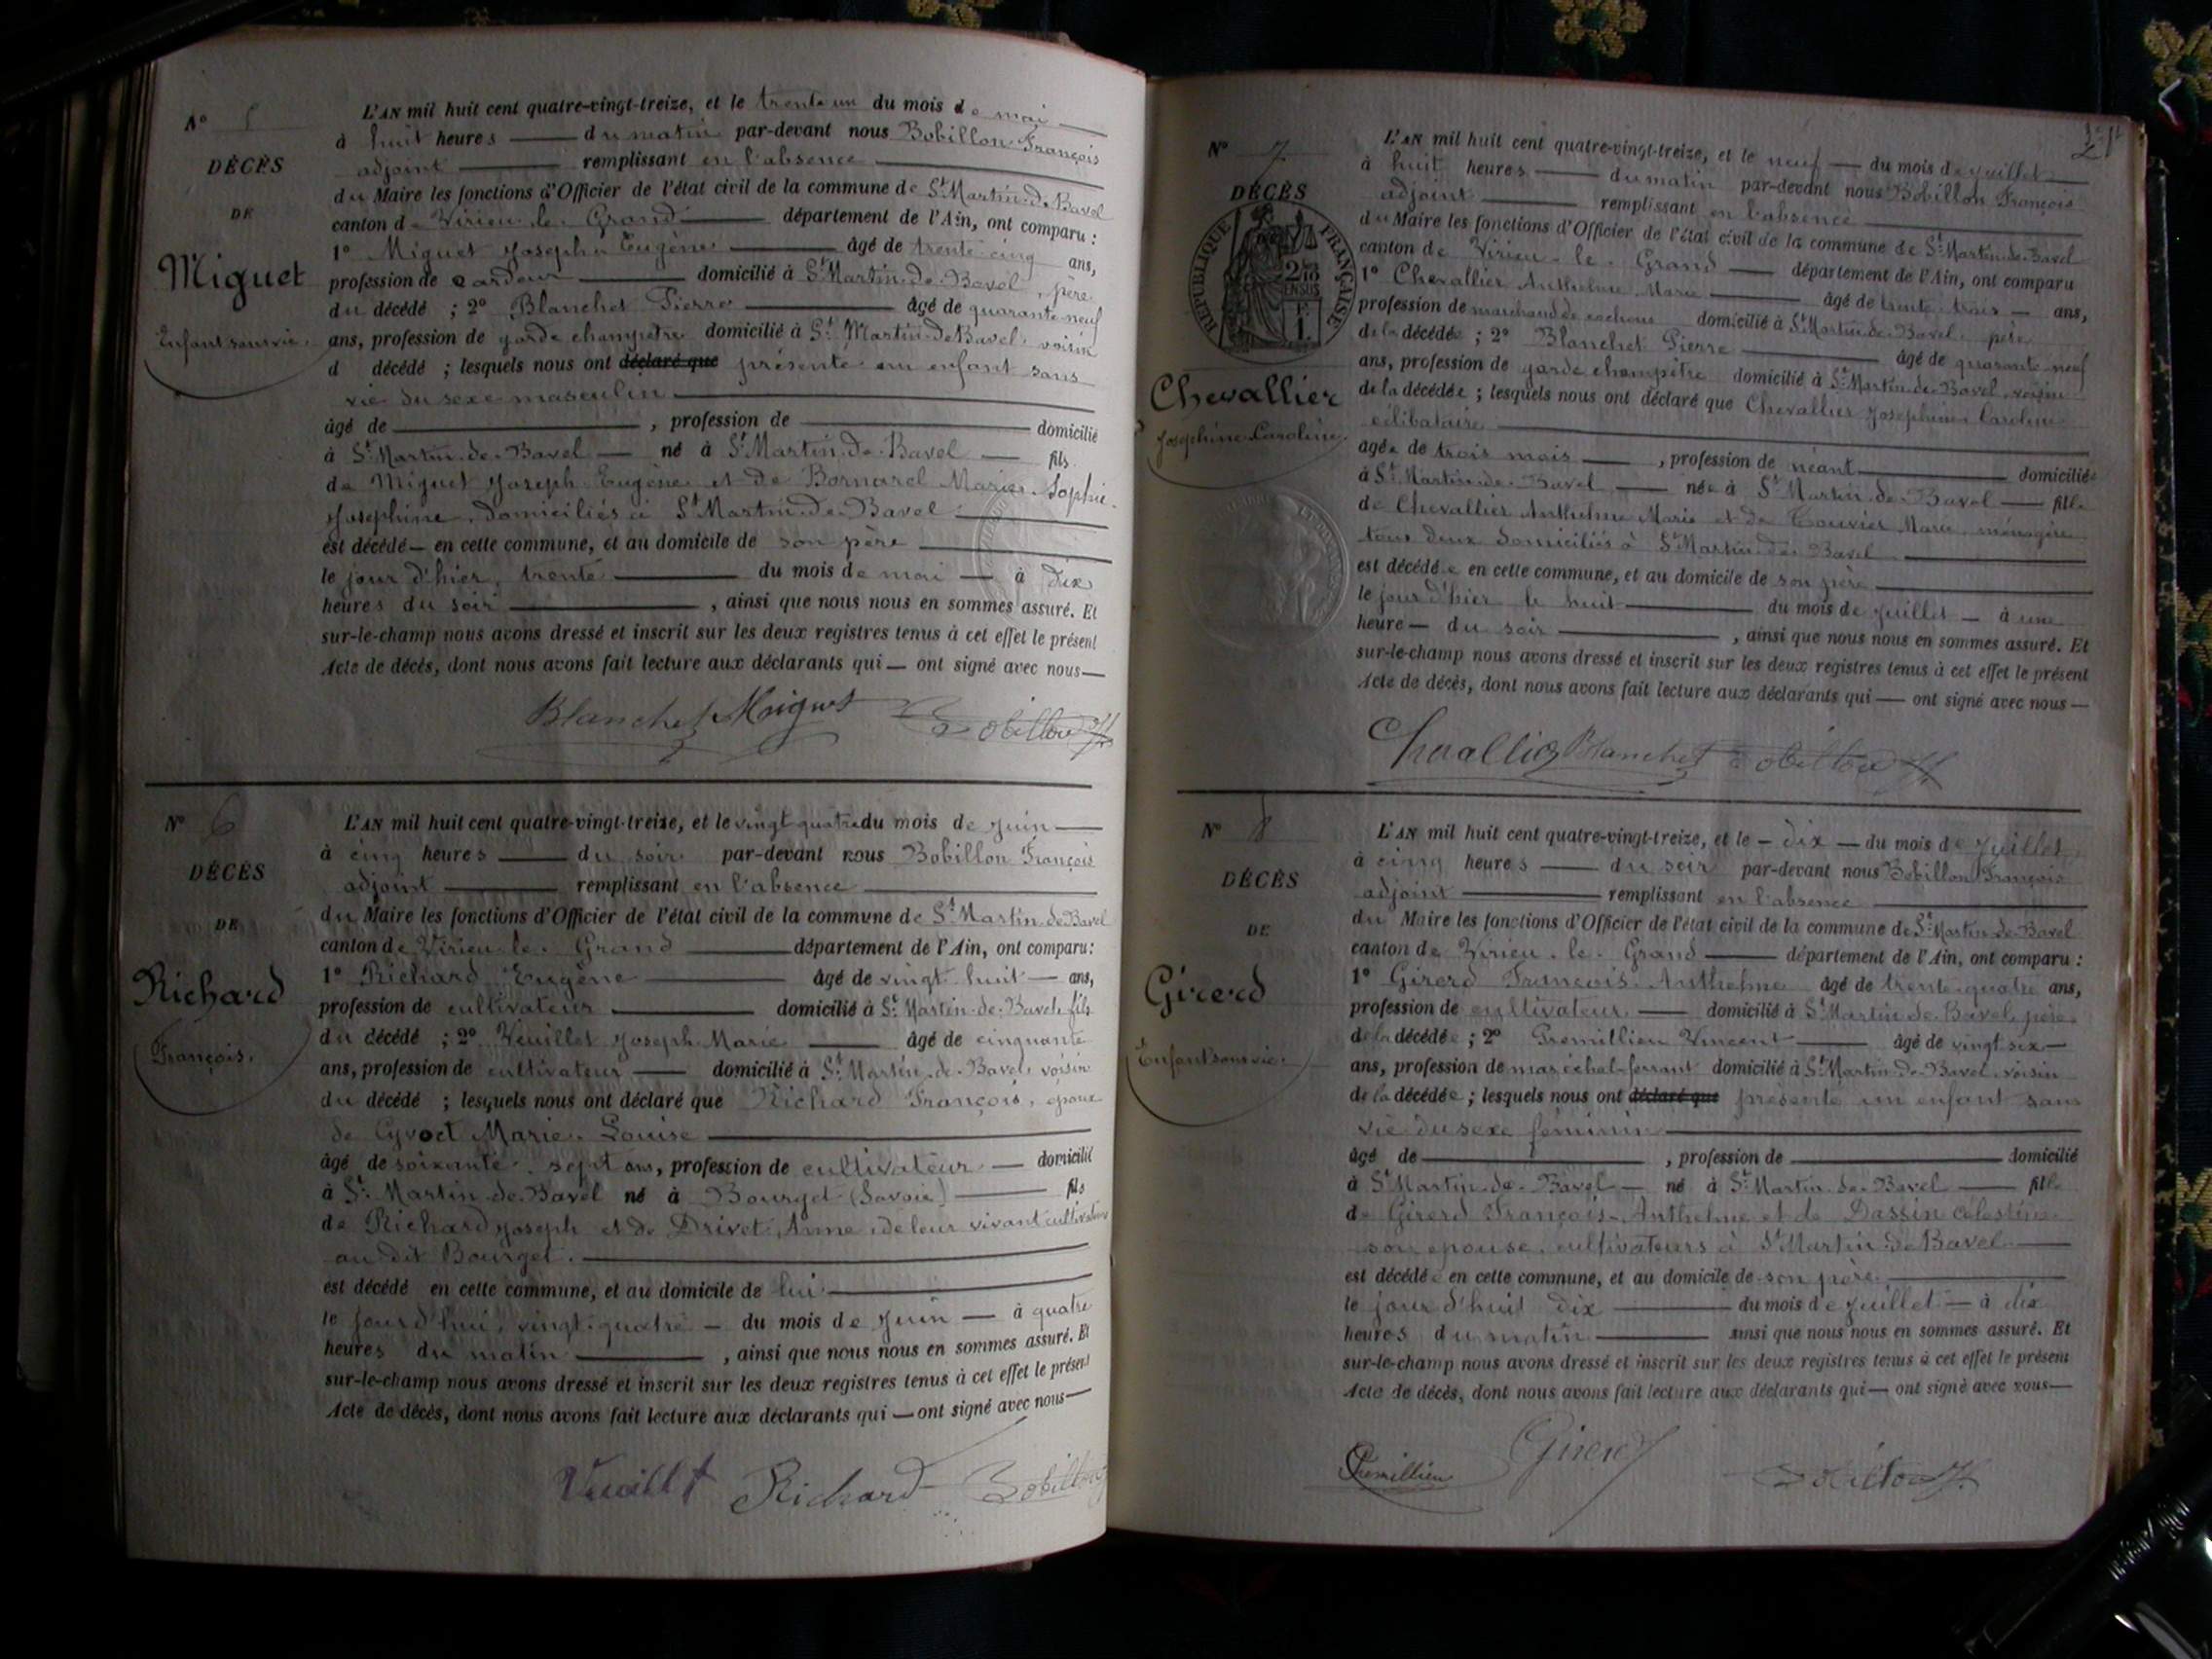 N° 5
DÉCÈS
DE
Miguet
Enfant sans vie.
L'AN mil huit cent quatre-vingt-treize, et le trente un du mois de mai
à huit heures du matin par-devant nous Bobillon François
adjoint remplissant en l'absence
du Maire les fonctions d'Officier de l'état civil de la commune de St Martin-de-Bavel
canton de Virieu-le-Grand département de l'Ain, ont comparu :
1° Miguet Joseph Eugène âgé de trente-cinq ans,
profession de cardeur domicilié à St Martin-de-Bavel, père
du décédé ; 2° Blanchet Pierre âgé de quarante-neuf
ans, profession de garde champêtre domicilié à St Martin-de-Bavel, voisin
d décédé ; lesquels nous ont déclaré que présenté un enfant sans
vie du sexe masculin
âgé de , profession de domicilié
à St Martin-de-Bavel né à St Martin-de-Bavel fils
de Miguet Joseph Eugène et de Bornarel Marie Sophie
Josephine, domiciliés à St Martin-de-Bavel
est décédé en cette commune, et au domicile de son père
le jour d'hier, trente du mois de mai à dix
heures du soir , ainsi que nous nous en sommes assuré. Et
sur-le-champ nous avons dressé et inscrit sur les deux registres tenus à cet effet le présent
Acte de décès, dont nous avons fait lecture aux déclarants qui — ont signé avec nous—
Blanchet Miguet Bobillon
N° 6
DÉCÈS
DE
Richard
François.
L'AN mil huit cent quatre-vingt-treize, et le vingt quatre du mois de juin
à cinq heures du soir par-devant nous Bobillon François
adjoint remplissant en l'absence
du Maire les fonctions d'Officier de l'état civil de la commune de St Martin-de-Bavel
canton de Virieu-le-Grand département de l'Ain, ont comparu :
1° Richard Eugène âgé de vingt huit ans,
profession de cultivateur domicilié à St Martin-de-Bavel, fils
du décédé ; 2° Veuillet Joseph Marie âgé de cinquante
ans, profession de cultivateur domicilié à St Martin-de-Bavel, voisin
du décédé ; lesquels nous ont déclaré que Richard François, époux
de Cyvoct Marie Louise
âgé de soixante-sept ans, profession de cultivateur domicilié
à St Martin-de-Bavel né à Bourget (Savoie) fils
de Richard Joseph et de Drivet Anne, de leur vivant cultivateurs
au dit Bourget.
est décédé en cette commune, et au domicile de lui
le jourd'hui, vingt-quatre du mois de juin à quatre
heures du matin , ainsi que nous nous en sommes assuré. Et
sur-le-champ nous avons dressé et inscrit sur les deux registres tenus à cet effet le présent
Acte de décès, dont nous avons fait lecture aux déclarants qui — ont signé avec nous—
Veuillet Richard Bobillon
N° 7
DÉCÈS
RÉPUBLIQUE FRANÇAISE
Chevallier
Josephine Caroline.
L'AN mil huit cent quatre-vingt-treize, et le neuf du mois de juillet
à huit heures du matin par-devant nous Bobillon François
adjoint remplissant en l'absence
du Maire les fonctions d'Officier de l'état civil de la commune de St Martin-de-Bavel
canton de Virieu-le-Grand département de l'Ain, ont comparu
1° Chevallier Anthelme Marie âgé de trente-trois ans,
profession de marchand de cochons domicilié à St Martin-de-Bavel, père
de la décédée ; 2° Blanchet Pierre âgé de quarante-neuf
ans, profession de garde champêtre domicilié à St Martin-de-Bavel, voisin
de la décédée ; lesquels nous ont déclaré que Chevallier Josephine Caroline
célibataire
agée de trois mois , profession de néant domiciliée
à St Martin-de-Bavel née à St Martin-de-Bavel fille
de Chevallier Anthelme Marie et de Touvier Marie, ménagère
tous deux domiciliés à St Martin-de-Bavel
est décédée en cette commune, et au domicile de son père
le jour d'hier le huit du mois de juillet à une
heure du soir , ainsi que nous nous en sommes assuré. Et
sur-le-champ nous avons dressé et inscrit sur les deux registres tenus à cet effet le présent
Acte de décès, dont nous avons fait lecture aux déclarants qui — ont signé avec nous —
Chevallier Blanchet Bobillon
N° 8
DÉCÈS
DE
Girerd
Enfant sans vie.
L'AN mil huit cent quatre-vingt-treize, et le — dix — du mois de juillet
à cinq heures du soir par-devant nous Bobillon François
adjoint remplissant en l'absence
du Maire les fonctions d'Officier de l'état civil de la commune de St Martin-de-Bavel
canton de Virieu-le-Grand département de l'Ain, ont comparu :
1° Girerd François Anthelme âgé de trente-quatre ans,
profession de cultivateur domicilié à St Martin-de-Bavel, père
de la décédée ; 2° Premillieu Vincent âgé de vingt six
ans, profession de maréchal-ferrant domicilié à St Martin-de-Bavel, voisin
de la décédée ; lesquels nous ont déclaré que présenté un enfant sans
vie du sexe féminin
âgé de , profession de domicilié
à St Martin-de-Bavel né à St Martin-de-Bavel fille
de Girerd François-Anthelme et de Dassin Célestine
son épouse, cultivateurs à St Martin-de-Bavel
est décédée en cette commune, et au domicile de son père
le jour d'hui dix du mois de juillet — à dix
heures du matin ainsi que nous nous en sommes assuré. Et
sur-le-champ nous avons dressé et inscrit sur les deux registres tenus à cet effet le présent
Acte de décès, dont nous avons fait lecture aux déclarants qui — ont signé avec nous—
Premillieu Girerd Bobillon